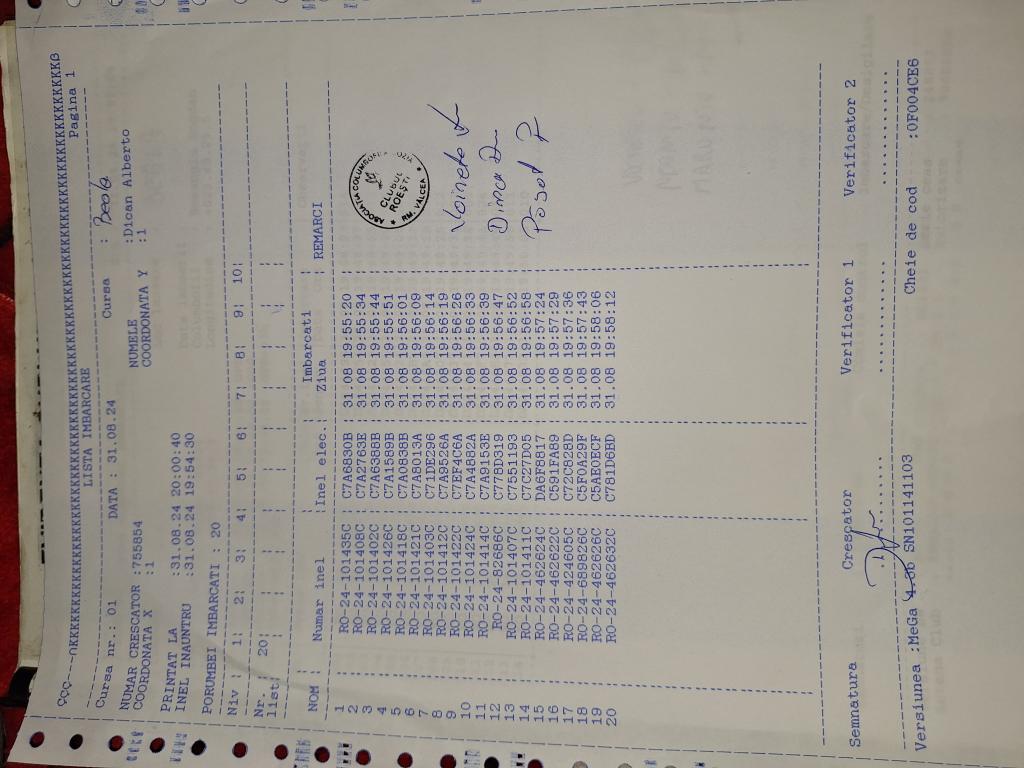 Pagina 1
LISTA IMBARCARE
Cursa nr.: 01 DATA : 31.08.24 Cursa :
NUMAR CRESCATOR :755854 NUMELE :Dican Alberto
COORDONATA X :1 COORDONATA Y :1
PRINTAT LA :31.08.24 20:00:40
INEL INAUNTRU :31.08.24 19:54:30
PORUMBEI IMBARCATI : 20
Niv : 1: 2: 3: 4: 5: 6: 7: 8: 9: 10:
Nr. list: 20:
Imbarcati
NOM : Numar inel :Inel elec.: Ziua on: REMARCI
1 : RO-24-101435C : C7A6830B : 31.08 19:55:20 :
2 : RO-24-101408C : C7A2763E : 31.08 19:55:34 :
3 : RO-24-101402C : C7A638BB : 31.08 19:55:44 :
4 : RO-24-101426C : C7A1589B : 31.08 19:55:51 :
5 : RO-24-101418C : C7A0838B : 31.08 19:56:01 :
6 : RO-24-101421C : C7A8013A : 31.08 19:56:09 :
7 : RO-24-101403C : C71DE296 : 31.08 19:56:14 :
8 : RO-24-101412C : C7A9526A : 31.08 19:56:19 :
9 : RO-24-101422C : C7EF4C6A : 31.08 19:56:26 :
10 : RO-24-101424C : C7A4882A : 31.08 19:56:33 :
11 : RO-24-101414C : C7A9153E : 31.08 19:56:39 :
12 : RO-24-82686C : C77BD319 : 31.08 19:56:47 :
13 : RO-24-101407C : C7551193 : 31.08 19:56:52 :
14 : RO-24-101411C : C7C27D05 : 31.08 19:56:58 :
15 : RO-24-462624C : DA6F8817 : 31.08 19:57:24 :
16 : RO-24-462622C : C591FA89 : 31.08 19:57:29 :
17 : RO-24-424605C : C72C828D : 31.08 19:57:36 :
18 : RO-24-689826C : C5F0A29F : 31.08 19:57:43 :
19 : RO-24-462626C : C5AB0ECF : 31.08 19:58:06 :
20 : RO-24-462632C : C781D6BD : 31.08 19:58:12 :
ASOCIATIA COLUMBOFILA
CLUBUL
ROEȘTI
RM. VALCEA
Dinca D
Semnatura Crescator Verificator 1 Verificator 2
Versiunea :MeGa SN101141103 Cheie de cod :0F004CE6